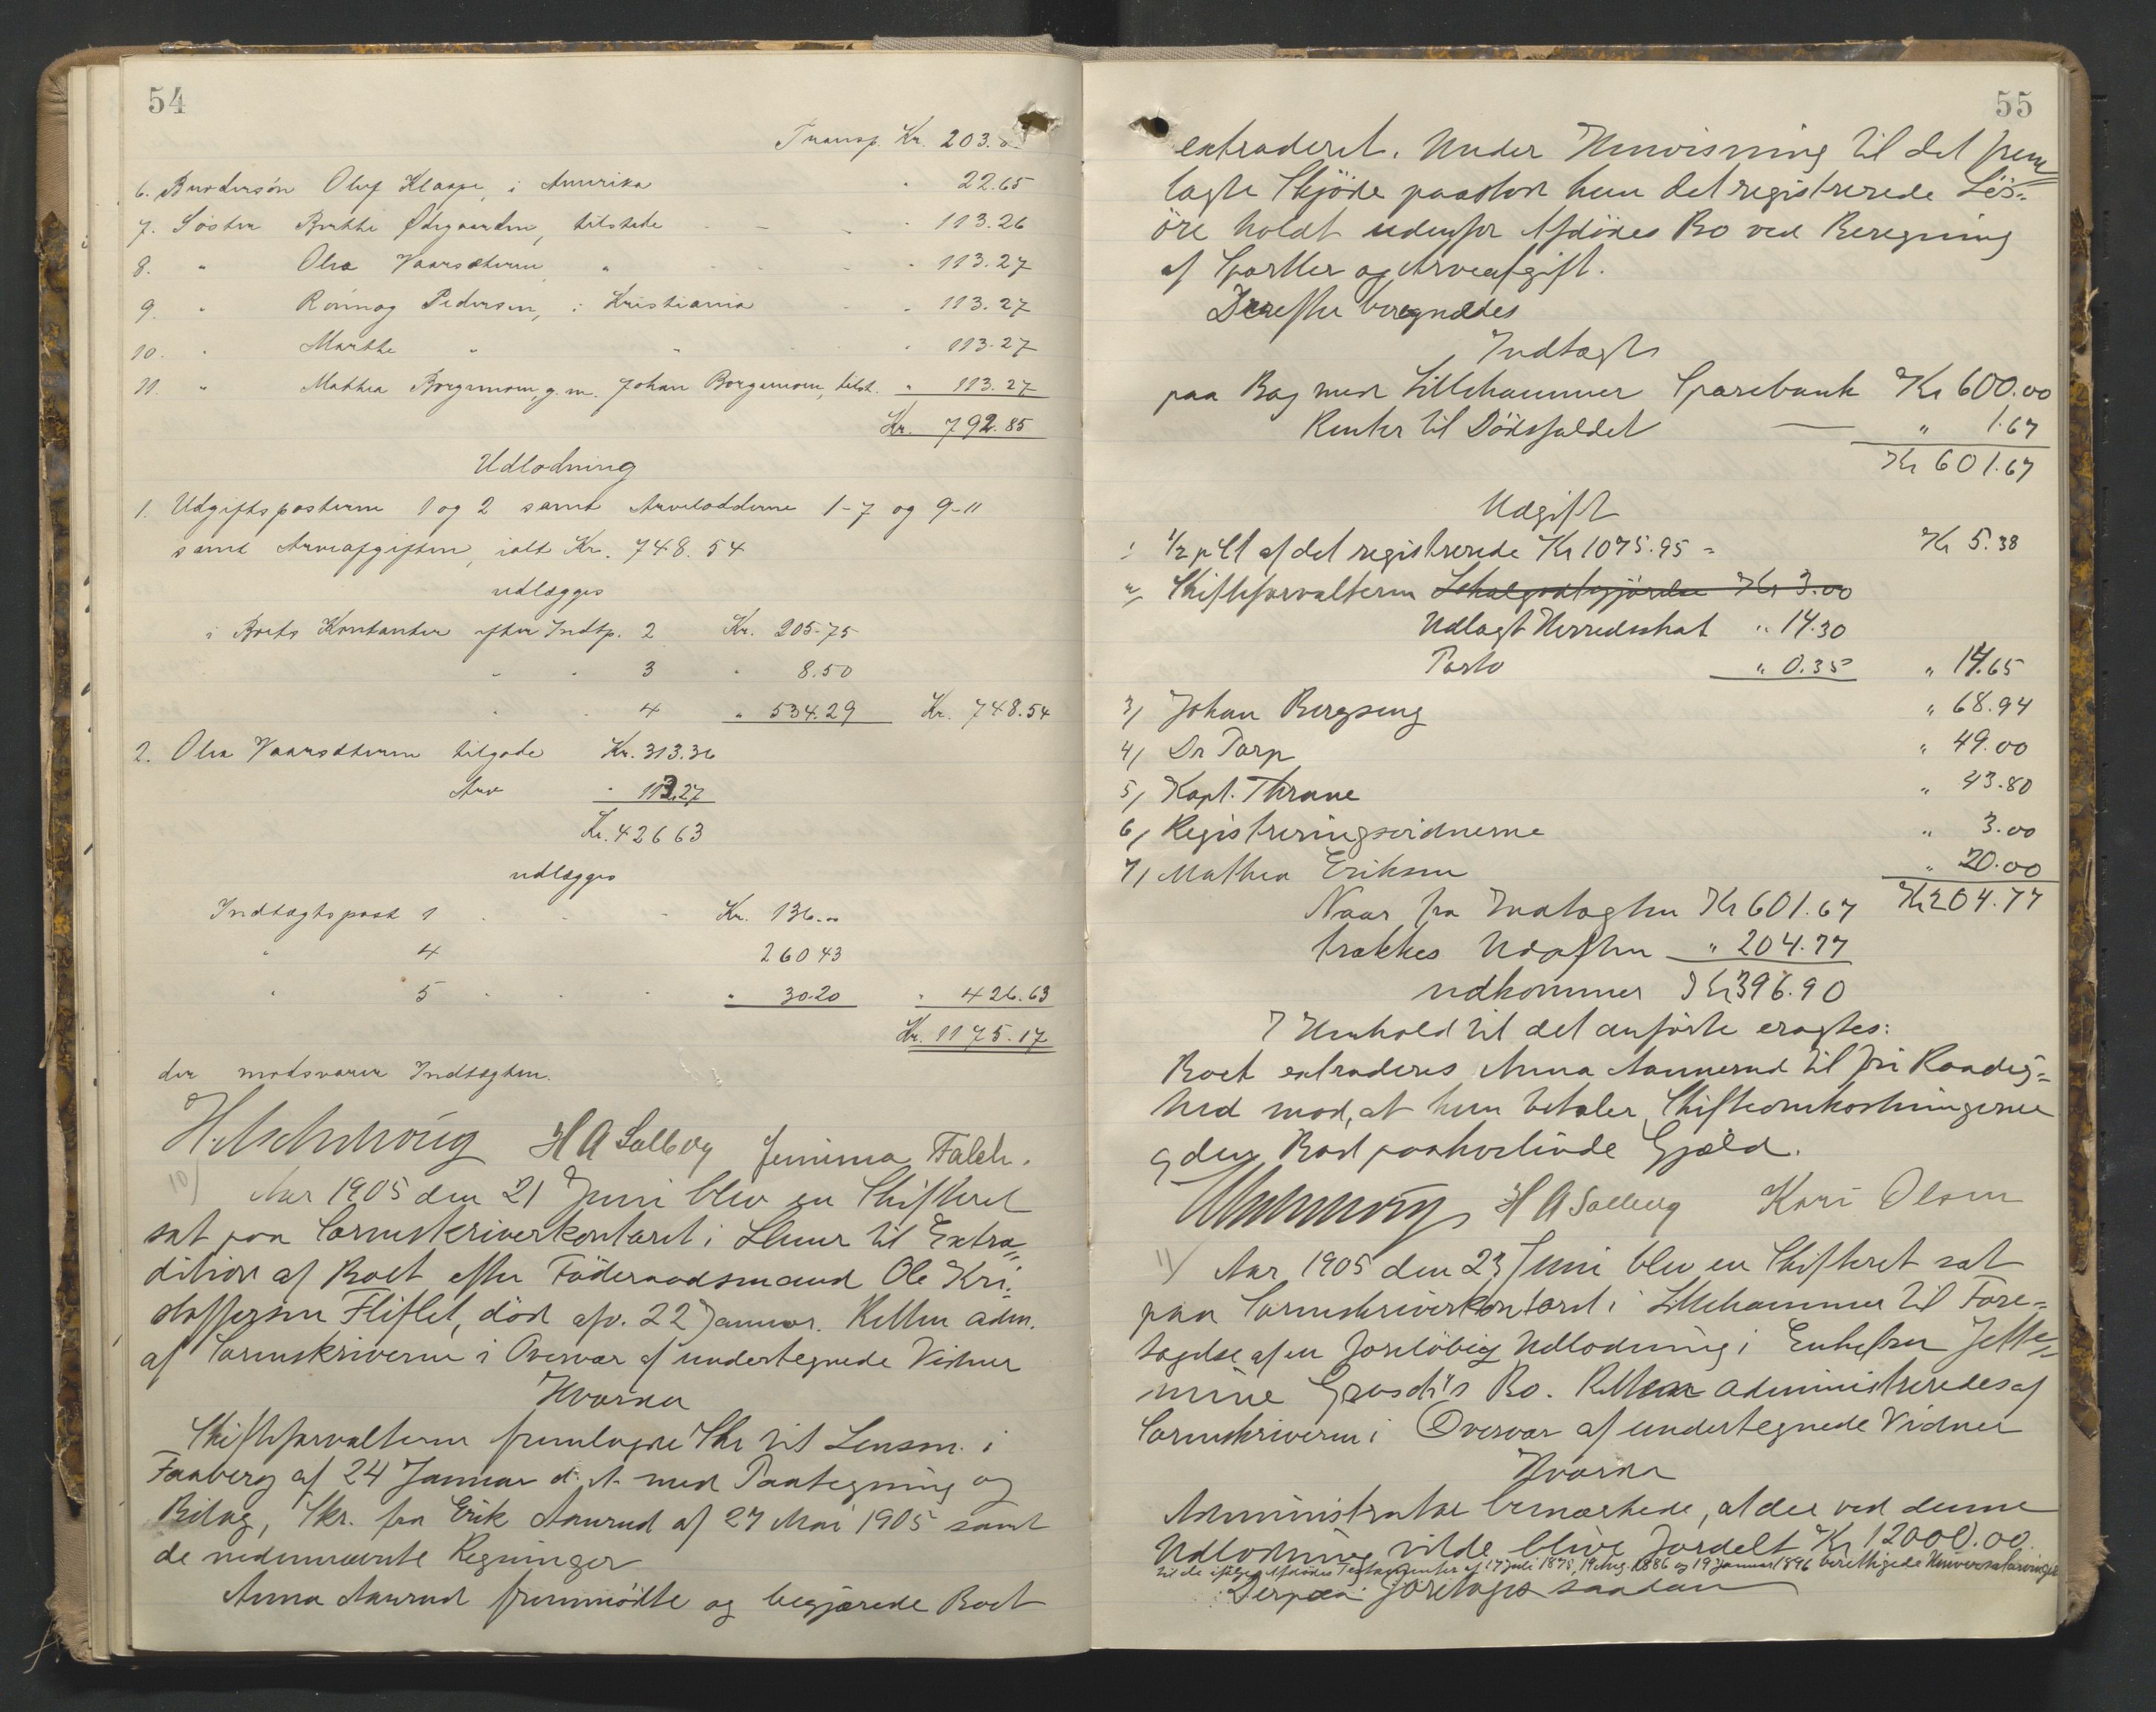 54
Transp. Kr. 203.
6. Brodersön Oluf Klaape, i Amerika " 22.65
7. Söster Berthe Ødegaarden, tilstede - - " 113.26
8. " Olea Vaarsæteren " - - " 113.27
9. " Rönnog Pedersen, i Kristiania - " 113.27
10. " Marthe " " - " 113.27
11. " Mathea Borgemoen, g.m. Johan Borgemoen, tilst. " 113.27
Kr. 792.85
Udlodning
1. Udgiftsposterne 1 og 2 samt Arvelodderne 1-7 og 9-11
samt Arveafgiften, ialt Kr. 748.54
udlægges
i Boets Kontanter efter Indtp. 2 Kr. 205.75
" " 3 " 8.50
" " 4 " 534.29 Kr. 748.54
2. Olea Vaarsæteren tilgode Kr. 313.36
Arv " 113.27
Kr. 426 63
udlægges
Indtægtspost 1 - - Kr. 136.00
" 4 260 43
" 5 - - " 30.20 " 426.63
Kr. 1175.17
der modsvarer Indtægten.
H. Aschehoug H A Solberg Jemima Falch.
10) Aar 1905 den 21 Juni blev en Skifteret
sat paa Sorenskriverkontoret i Lhmr til Extra=
dition af Boet efter Föderaadsmand Ole Kri=
stoffersen Fliflet, död afv. 22 Januar. Retten adm.
af Sorenskriveren i Overvær af undertegnede Vidner
Hvorda
Skifteforvalteren fremlagde Skr til Lensm. i
Faaberg af 24 Januar d. A. med Paategning og
Bilag, Skr. fra Erik Aanrud af 27 Mai 1905 samt
de nedennævnte Regninger
Anna Aanrud fremmödte og begjærede Boet
55
extraderet. Under Henvisning til det frem=
lagte Skjöde paastod hun det registrerede Lös=
öre holdt udenfor Afdödes Bo ved Beregning
af Sportler og Arveafgift.
Derefter beregnedes
Indtægt
paa Bog med Lillehammer Sparebank Kr 600.00
Renter til Dödsfaldet — " 1.67
Kr 601.67
Udgift
1 1/2 pCt af det registrerede Kr 1075.95 = Kr 5.38
2/ Skifteforvalteren Lokalgodtgjörelse Kr 3.00
Udlagt Herredsskat " 14.30
Porto " 0.35 " 14.65
3/ Johan Bergseng " 68.94
4/ Dr Torp " 49.00
5/ Kapt. Thrane " 43.80
6/ Registreringsvidnerne " 3.00
7/ Mathea Eriksen " 20.00
Naar fra Indtægten Kr 601.67 Kr 204.77
trækkes Udgiften " 204.77
udkommer Kr 396.90
I Henhold til det anförte eragtes:
Boet extraderes Anna Aannerud til fri Raadig=
hed mod, at hun betaler Skifteomkostningerne
og den Boet paahvilende Gjæld.
H. Aschehoug H A Solberg Kari Olsen
11) Aar 1905 den 23 Juni blev en Skifteret sat
paa Sorenskriverkontoret i Lillehammer til Fore=
tagelse af en foreløbig Udlodning i Enkefru Jette=
mine Bo. Retten administreredes af
Sorenskriveren i Overvær af undertegnede Vidner
Hvorda
Administrator bemærkede, at der ved denne
Udlodning vilde blive fordelt Kr 12000.00.
til de ifølge Afdödes Testamenter af 17 Juli 1875, 19 Aug. 1886 og 19 Januar 1896 berettigede Universalarvinger
Derpaa foretoges saadan